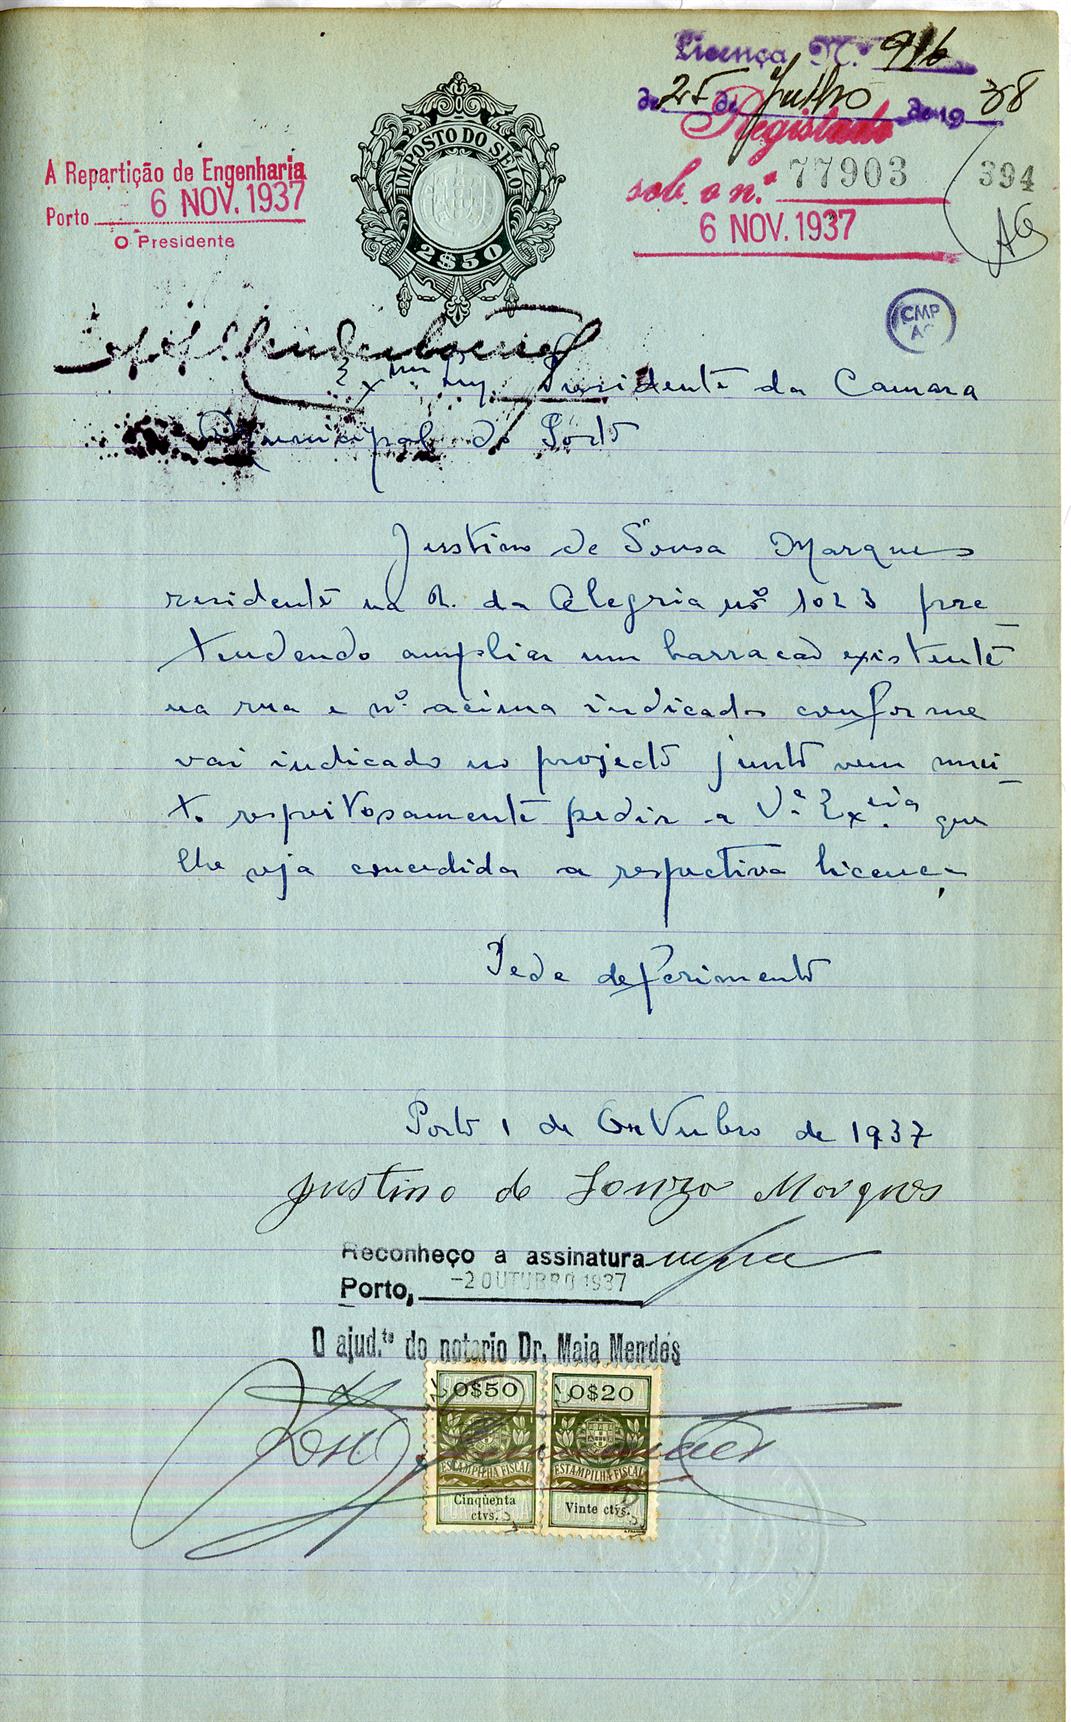 Licença N.º 916
de 25 de Julho de 19 38
Registado
sob o n.º 77903
394
6 NOV. 1937
AG
A Repartição de Engenharia
Porto 6 NOV. 1937
O Presidente
IMPOSTO DO SELO
2$50
CMP
AG
Exmo Snr. Presidente da Camara
Municipal do Porto
Justino de Sousa Marques
residente na R. da Alegria nº 1023 pre-
tendendo ampliar um barracão existente
na rua e nº acima indicados conforme
vai indicado no projecto junto vem mui-
to respeitosamente pedir a V.ª Ex.cia que
lhe seja concedida a respectiva licença
Pede deferimento
Porto 1 de Outubro de 1937
Justino de Souza Marques
Reconheço a assinatura supra
Porto, -2 OUTUBRO 1937
O ajud.te do notario Dr. Maia Mendes
0$50 0$20
ESTAMPILHA FISCAL ESTAMPILHA FISCAL
Cinqüenta ctvs. Vinte ctvs.